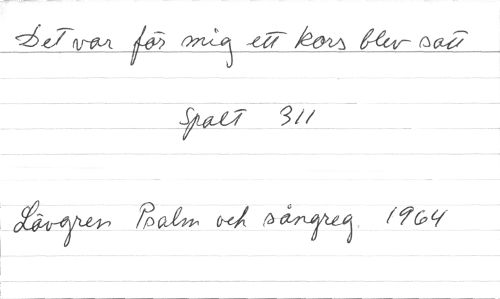 Det var för mig ett kors blev satt
Spalt 311
Lövgren Psalm och sångreg. 1964